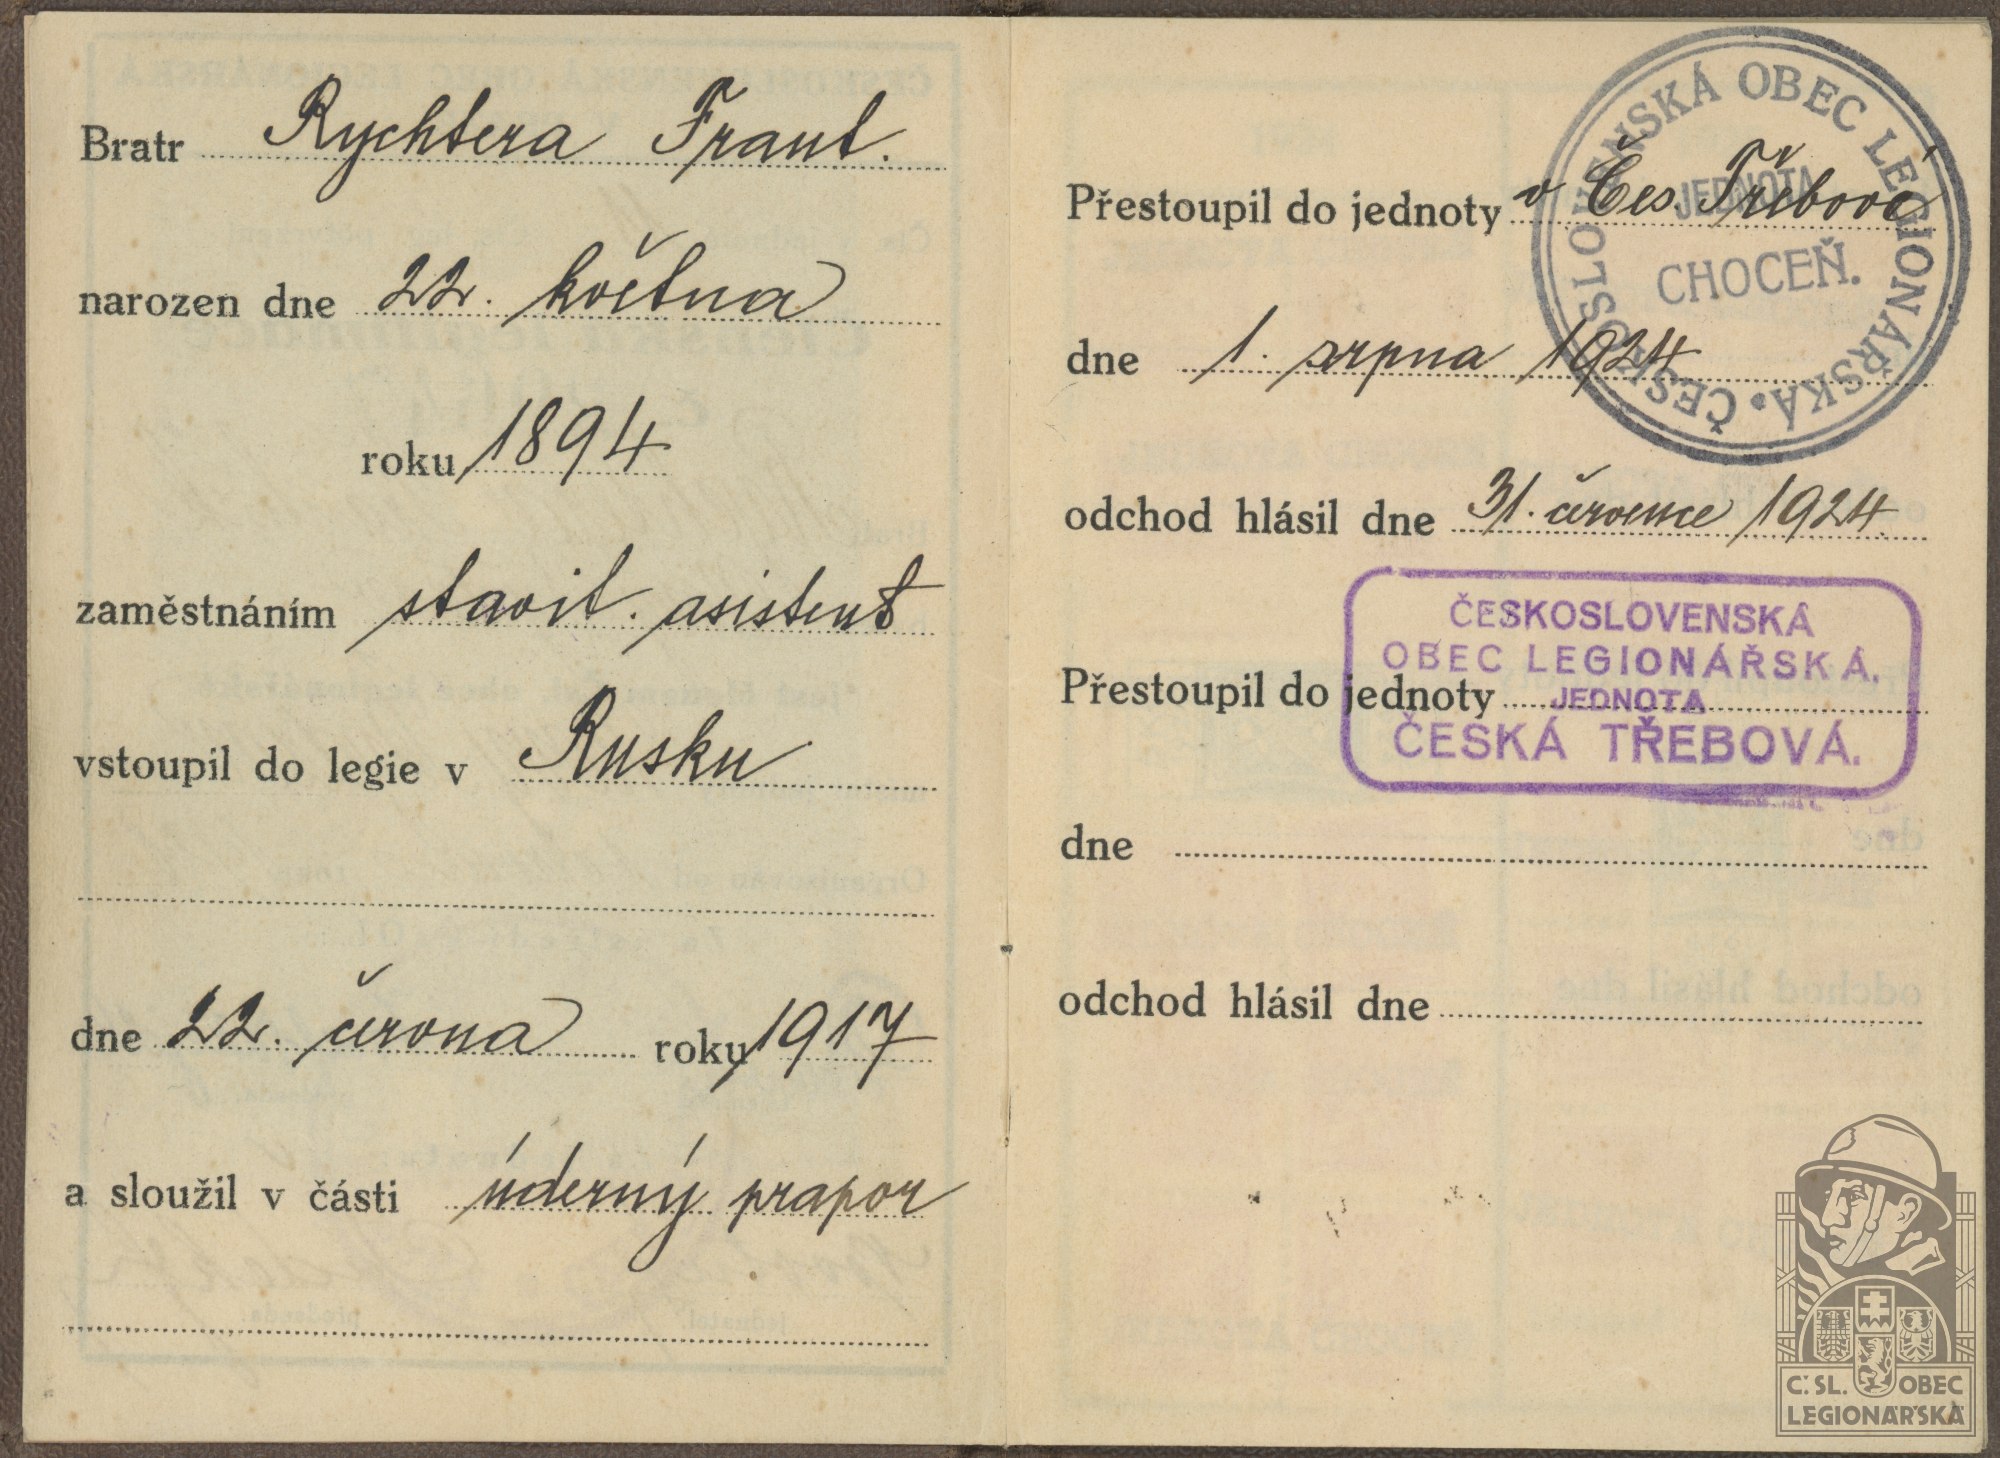 Bratr Rychtera Frant.
narozen dne 22. května
roku 1894
zaměstnáním stavit. asistent
vstoupil do legie v Rusku
dne 22. června roku 1917
a sloužil v části úderný prapor
Přestoupil do jednoty v Čes. Třebové
dne 1. srpna 1924
odchod hlásil dne 31. července 1924.
Přestoupil do jednoty
dne
odchod hlásil dne
ČESKOSLOVENSKÁ OBEC LEGIONÁŘSKÁ.
JEDNOTA
CHOCEŇ.
ČESKOSLOVENSKÁ
OBEC LEGIONÁŘSKÁ.
JEDNOTA
ČESKÁ TŘEBOVÁ.
Č. SL. OBEC
LEGIONÁŘSKÁ